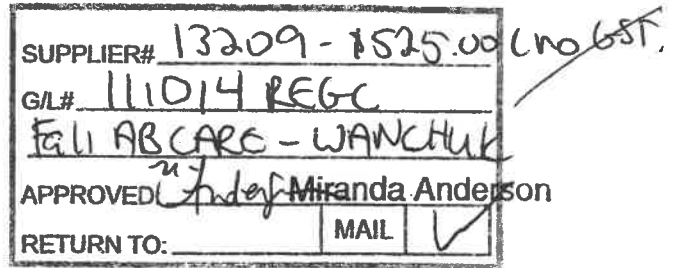 SUPPLIER# 13209 - $525.00 (no GST.
G/L# 111014 REGC
Fall ABCARC - WANCHUK
APPROVED Miranda Anderson
RETURN TO: MAIL ✓